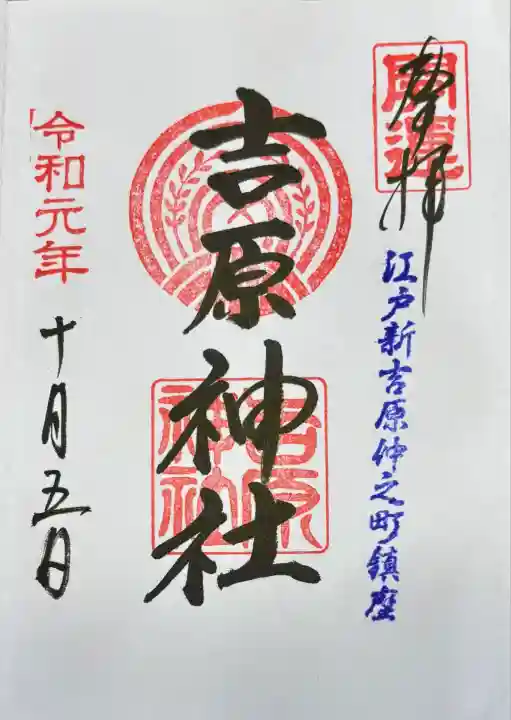 開運
奉拝
江戸新吉原仲之町鎮座
吉原神社
吉原
神社
令和元年
十月五日